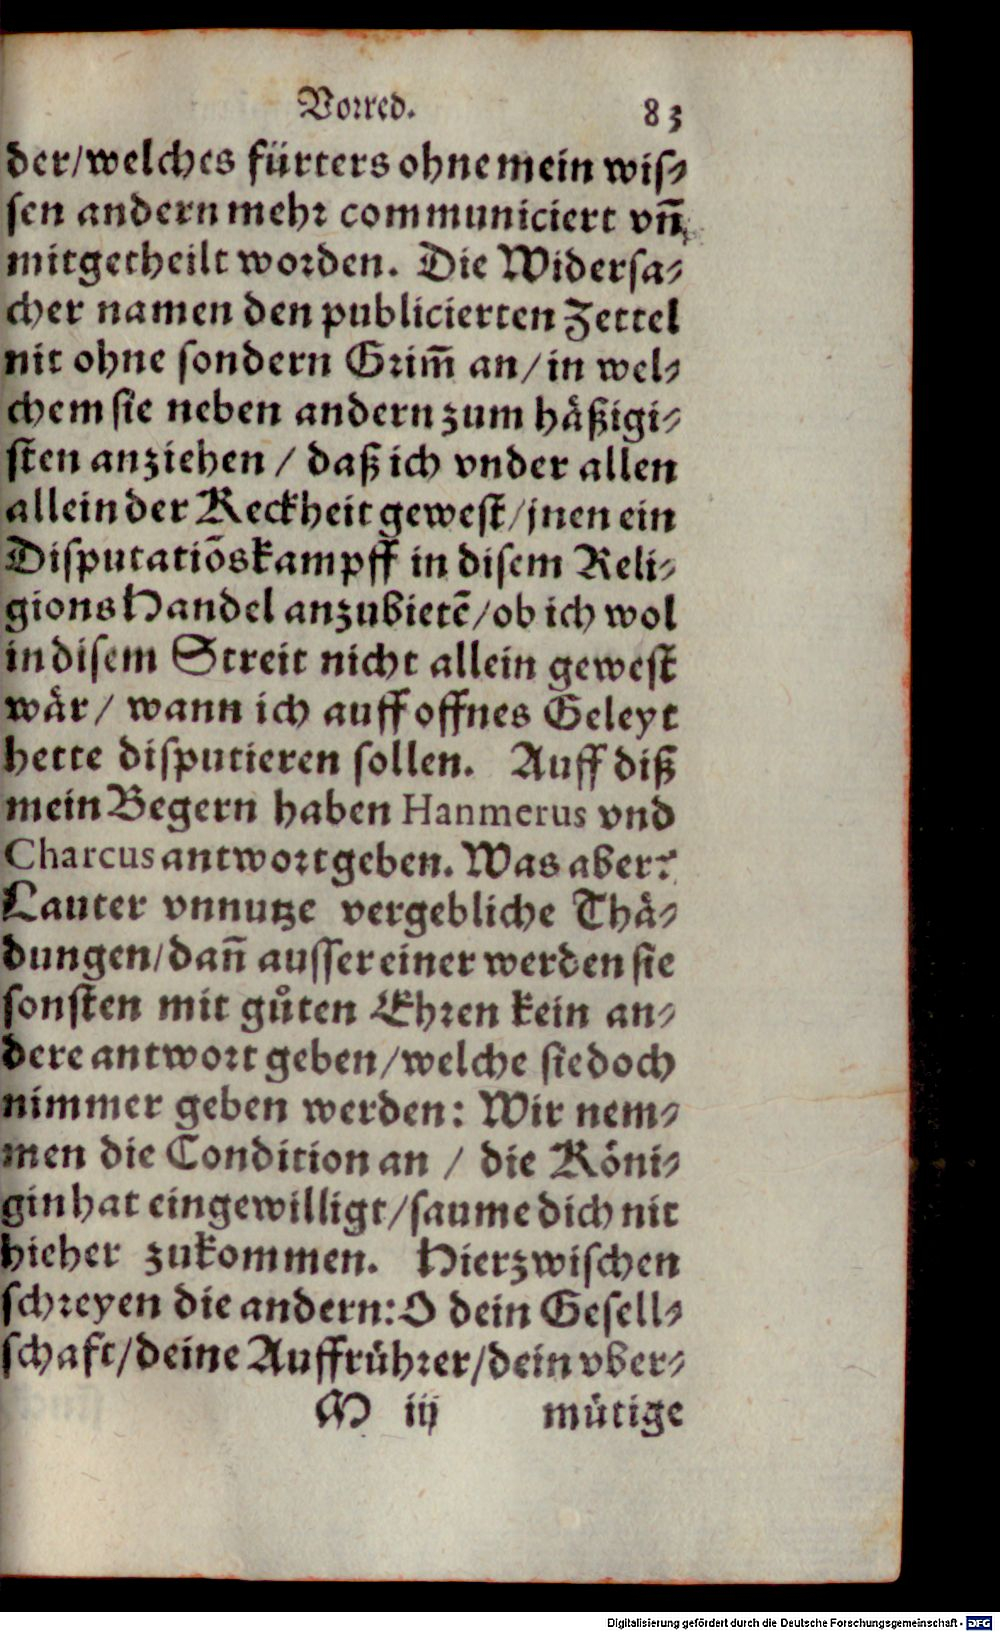 Vorred. 83
der/welches fürters ohne mein wis⸗
sen andern mehr communiciert vnñ
mitgetheilt worden. Die Widersa⸗
cher namen den publicierten Zettel
nit ohne sondern Grim̃ an/in wel⸗
chem sie neben andern zum häßigi⸗
sten anziehen / daß ich vnder allen
allein der Keckheit gewest/jnen ein
Disputatiõskampff in disem Reli⸗
gions Handel anzubietẽ/ob ich wol
in disem Streit nicht allein gewest
wär/ wann ich auff offnes Geleyt
hette disputieren sollen. Auff diß
mein Begern haben Hanmerus vnd
Charcus antwort geben. Was aber?
Lauter vnnutze vergebliche Thä⸗
dungen/dañ ausser einer werden sie
sonsten mit gůten Ehren kein an⸗
dere antwort geben/welche sie doch
nimmer geben werden: Wir nem⸗
men die Condition an / die Köni⸗
gin hat eingewilligt/saume dich nit
hieher zukommen. Hierzwischen
schreyen die andern: O dein Gesell⸗
schaft/deine Auffrührer/dein vber⸗
M iij mütige
Digitalisierung gefördert durch die Deutsche Forschungsgemeinschaft - DFG